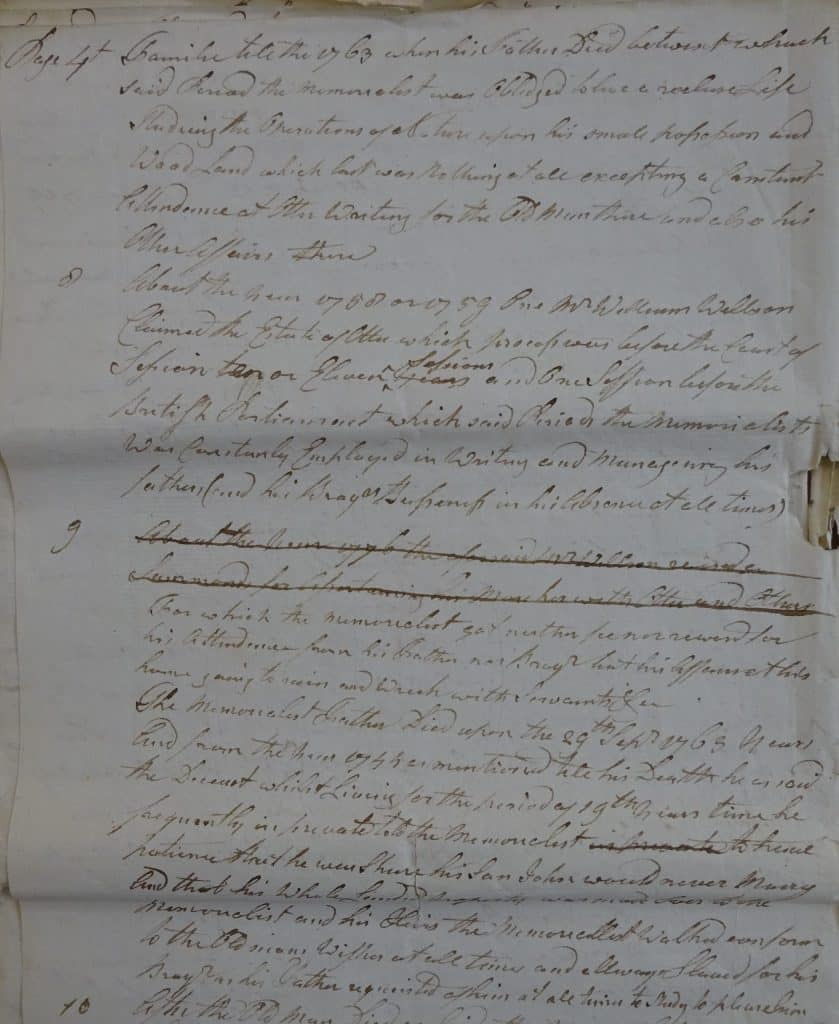 Page 4t Familie till the 1763 when his Father Died betwixt which
said Period the Memorialist was Obliged to live a recluse Life
Studieing the Operations of Nature upon his small possession and
Wood Land which last was Nothing at all excepting a Constant
Attendance at Otter Writing for the Old Man there and also his
Other Affairs there
8 About the year 1758 or 1759 One Mr William Willson
Claimed the Estate of Otter which process was before the Court of
Session ten or Eleven Sessions Years and One Session before the
British Parliament which said Periods the Memorialists
Was Constantly Employed in Writing and Manageing his
fathers (and his Brayr Bussness in his Absence at all times)
9 About the year 1776 the aforsaid Mr Willson raised a
for his with Otter and Others
For which the memorialist got neither fee nor reward for
his Attendance from his Father nor Brayr but his Affairs at his
home going to ruin and Wreck with Servants &ca
The Memorialist Father Died upon the 29th Sepr 1763 Years
And from the year 1744 as mentioned till his Death he as said
the Deceast whilst Living for the period of 19th years time he
frequently in private told the Memorialist in private to have
patience that he was Shure his Son John would never Marry
And that his Whole Land
Memorialist and his the Memorialist Walked conform
to the Old mans Wishes at all times and allways Slaved for his
Brayr as his Father requested of him at all time to study to please him
10 After the Old Man Died